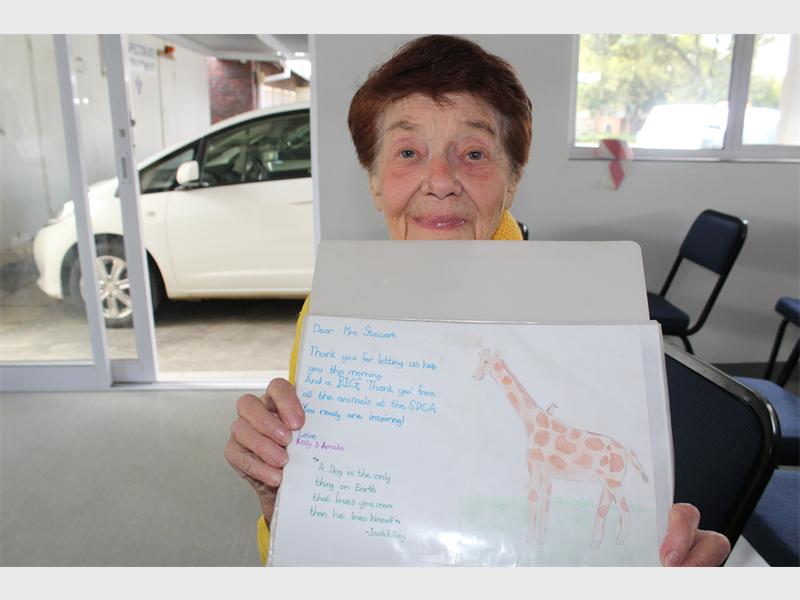 Dear Mrs Stewart
Thank you for letting us help
you this morning.
And a "BIG" 'Thank you' from
all the animals at the SPCA
You really are inspiring!
Love
Kelly & Amelia
"A Dog is the only
thing on Earth
that loves you more
than he loves himself"
-Josh Billing